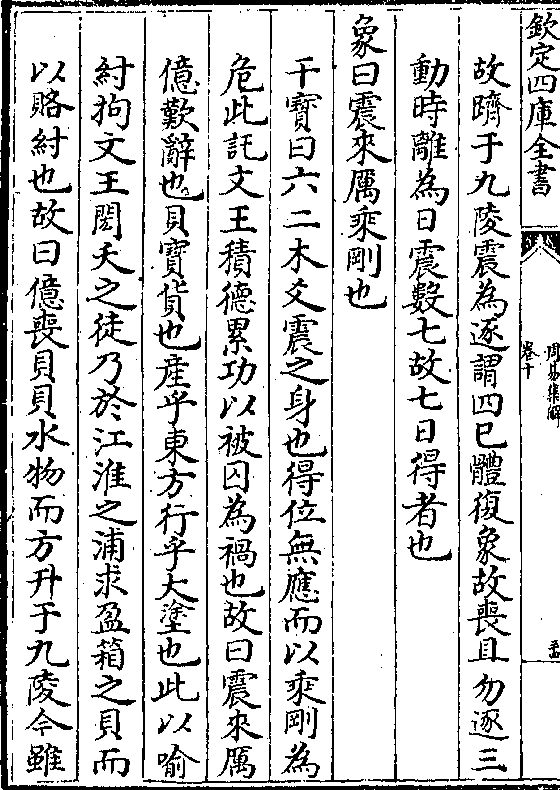 欽定四庫全書
周易集解
卷十
故躋于九陵震為逐謂四已體復象故喪且勿逐三
動時離為日震數七故七日得者也
象曰震來厲乘剛也
干寶曰六二木爻震之身也得位無應而以乘剛為
危此託文王積德累功以被囚為禍也故曰震來厲
億歎辭也貝寶貨也産乎東方行乎大塗也此以喻
紂拘文王閎夭之徒乃於江淮之浦求盈箱之貝而
以賂紂也故曰億喪貝貝水物而方升于九陵今雖